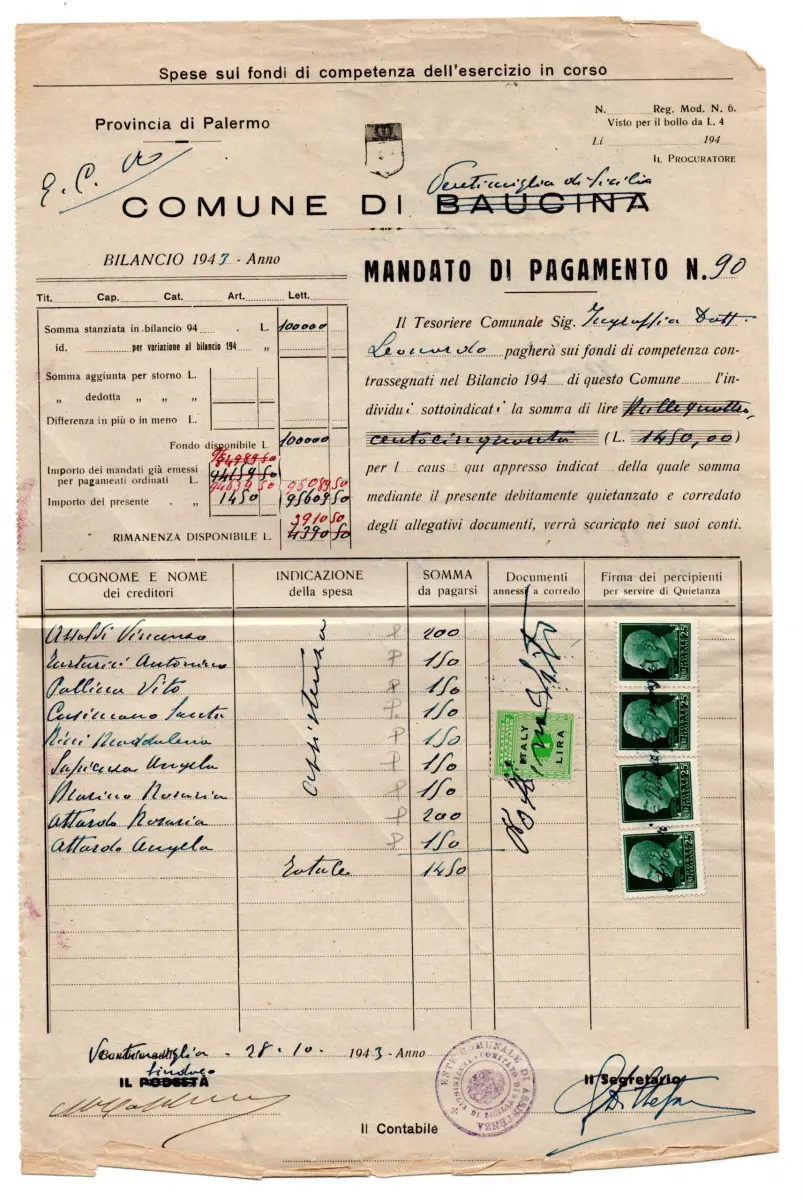 Spese sui fondi di competenza dell'esercizio in corso
N. Reg. Mod. N. 6.
Visto per il bollo da L. 4
Lì 194
IL PROCURATORE
Provincia di Palermo
E. C. A.
Ventimiglia di Sicilia
COMUNE DI BAUCINA
BILANCIO 1943 - Anno
MANDATO DI PAGAMENTO N. 90
Tit. Cap. Cat. Art. Lett.
Somma stanziata in bilancio 94 . L. 100000
id. per variazione al bilancio 194 „
Somma aggiunta per storno L.
„ dedotta „ „ „
Differenza in più o in meno L.
Fondo disponibile L. 100000
Importo dei mandati già emessi
per pagamenti ordinati L. 94159 50
94639 50 96089 50
Importo del presente . „ 1450 95609 50
3910 50
RIMANENZA DISPONIBILE L. 4390 50
Il Tesoriere Comunale Sig. Ingraffia Dott.
Leonardo pagherà sui fondi di competenza con-
trassegnati nel Bilancio 194 di questo Comune l'in-
dividui sottoindicati la somma di lire Millequattro
centocinquanta (L. 1450,00)
per l caus qui appresso indicat della quale somma
mediante il presente debitamente quietanzato e corredato
degli allegativi documenti, verrà scaricato nei suoi conti.
COGNOME E NOME
dei creditori
INDICAZIONE
della spesa
SOMMA
da pagarsi
Documenti
annessi a corredo
Firma dei percipienti
per servire di Quietanza
Vincenzo 200
Antonino 150
Pollina Vito 150
Cusimano Santa 150
Pini Maddalena 150
Sapienza Angela 150
Marino Rosaria 150
Attardo Rosaria 200
Attardo Angela 150
Assistenza
Totale 1450
ITALY
1
LIRA
25
25
25
25
Ventimiglia - 28.10. 1943 - Anno
Sindaco
IL PODESTÀ
ENTE COMUNALE DI ASSISTENZA
Il Segretario
Il Contabile